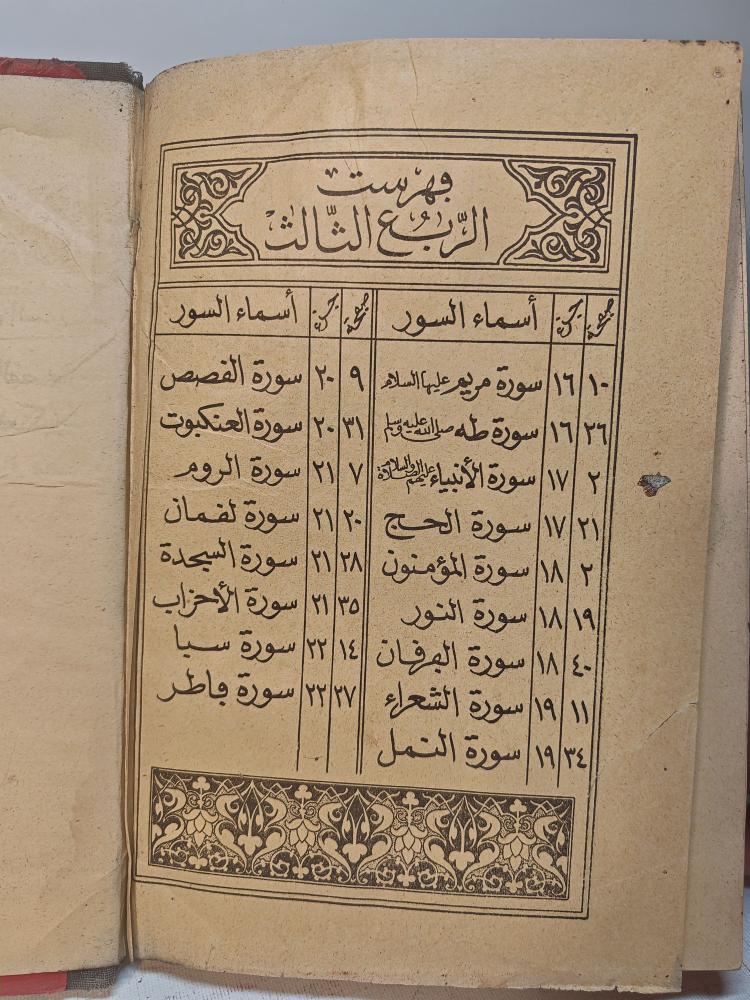 فهرست
الرّبُع الثّالث
صفحة جزء أسماء السور
١٠ ١٦ سورة مريم عليها السلام
٢٦ ١٦ سورة طه صلى الله عليه وسلم
٢ ١٧ سورة الأنبياء عليهم الصلاة والسلام
٢١ ١٧ سورة الحج
٢ ١٨ سورة المؤمنون
١٩ ١٨ سورة النور
٤٠ ١٨ سورة الفرفان
١١ ١٩ سورة الشعراء
٣٤ ١٩ سورة النمل
صفحة جزء أسماء السور
٩ ٢٠ سورة القصص
٣١ ٢٠ سورة العنكبوت
٧ ٢١ سورة الروم
٢٠ ٢١ سورة لقمان
٢٨ ٢١ سورة السجدة
٣٥ ٢١ سورة الأحزاب
١٤ ٢٢ سورة سبا
٢٧ ٢٢ سورة فاطر